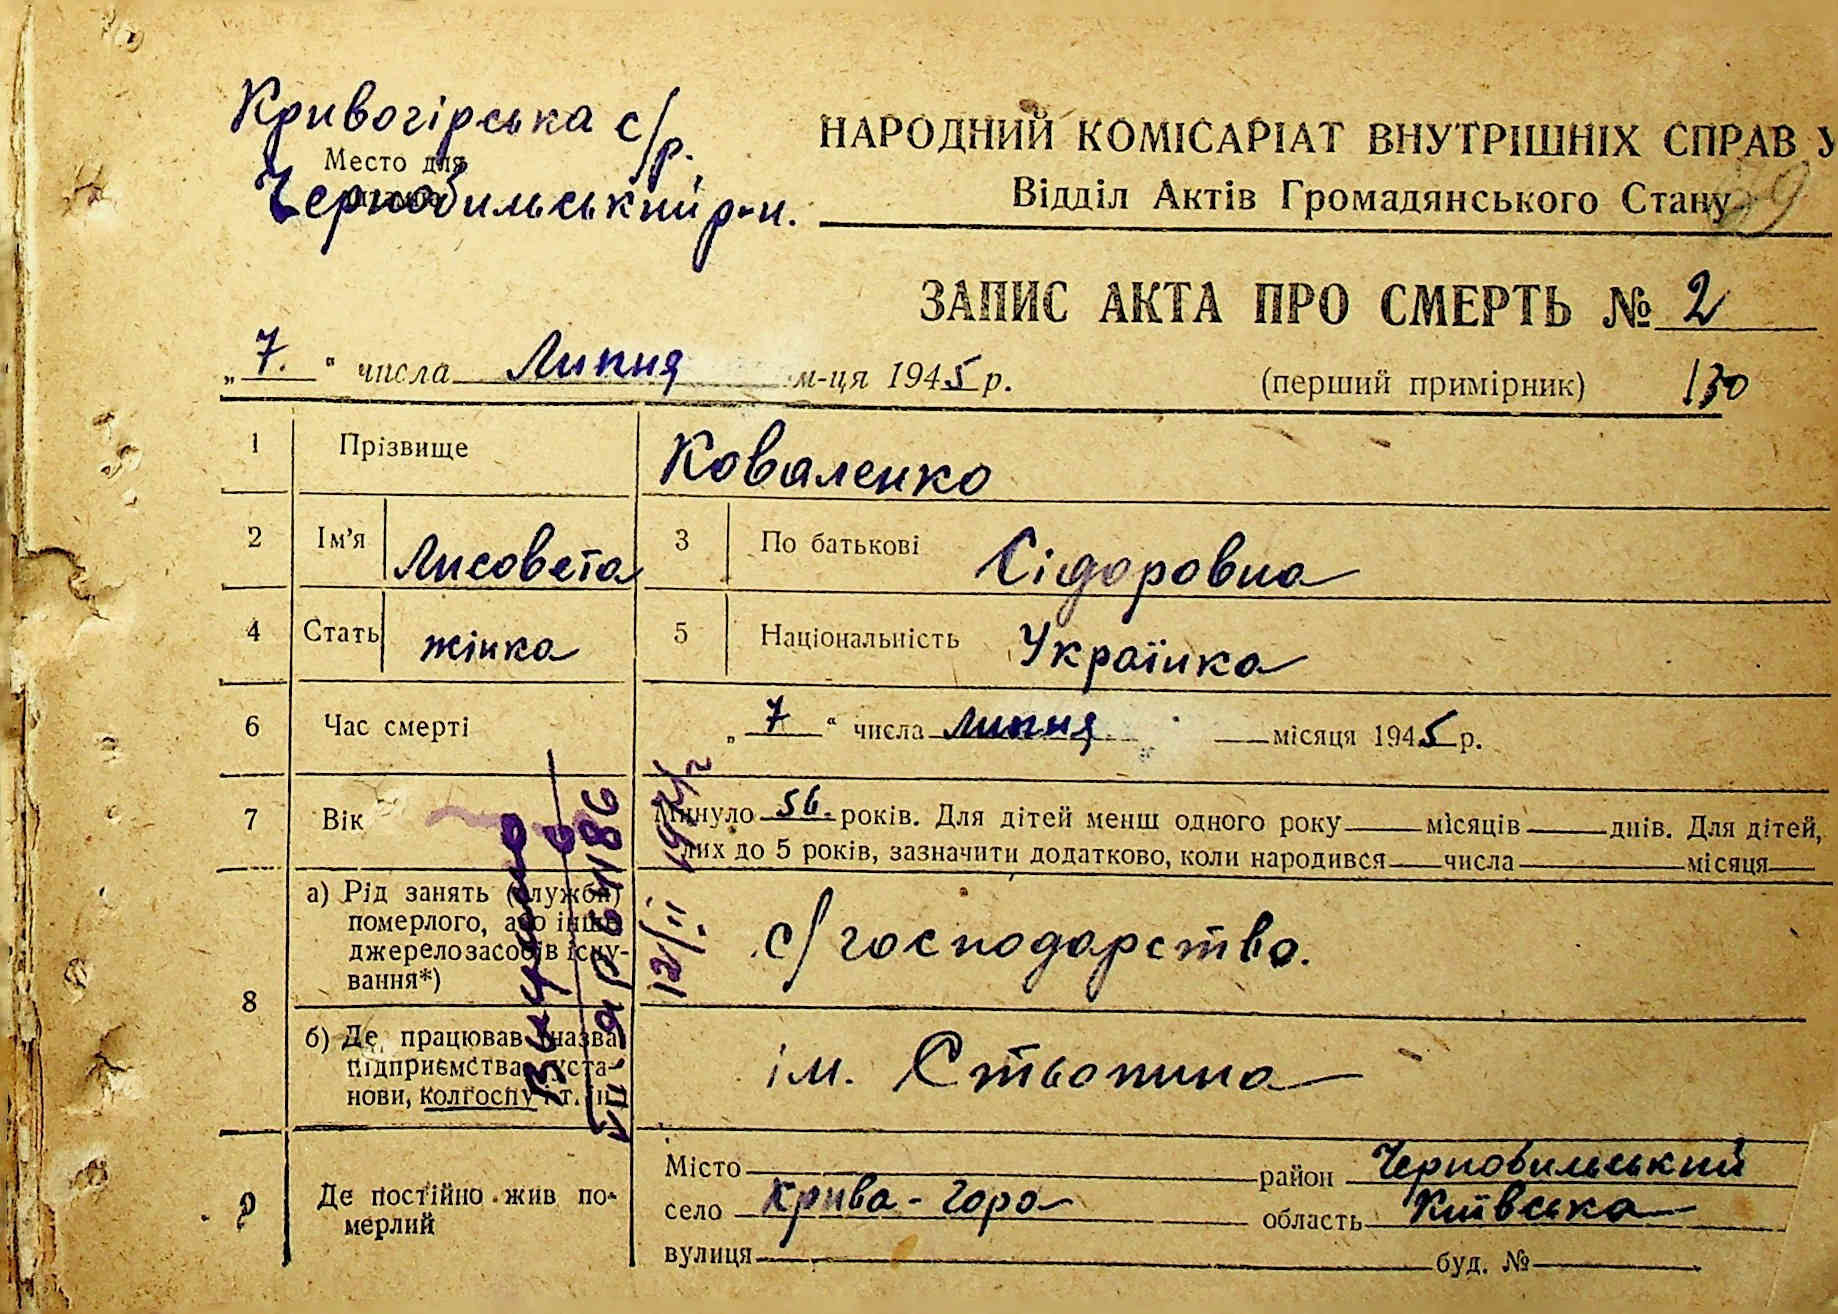 Кривогірська с/р.
Место для
Чернобильський р-н.
НАРОДНИЙ КОМІСАРІАТ ВНУТРІШНІХ СПРАВ У
Відділ Актів Громадянського Стану
ЗАПИС АКТА ПРО СМЕРТЬ № 2
„7.“ числа Липня м-ця 1945 р. (перший примірник) 130
1 Прізвище Коваленко
2 Ім'я Лисовета 3 По батькові Сідоровна
4 Стать жінка 5 Національність Українка
6 Час смерті „7“ числа липня місяця 1945 р.
7 Вік Минуло 56. років. Для дітей менш одного року місяців днів. Для дітей,
лих до 5 років, зазначити додатково, коли народився числа місяця
8 а) Рід занять (служби) с/господарство.
померлого, або інше
джерело засобів існу-
вання*)
б) Де працював (назва ім. Стьопина
підприємства, уста-
нови, колгоспу і т. п.
9 Де постійно жив по-
мерлий
Місто район Чернобильський
село Крива-Гора область Київська
вулиця буд. №